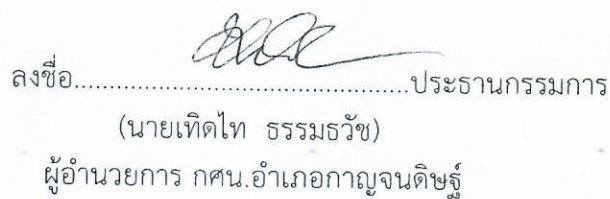 ลงชื่อ................................................ประธานกรรมการ
(นายเทิดไท ธรรมธวัช)
ผู้อำนวยการ กศน.อำเภอกาญจนดิษฐ์